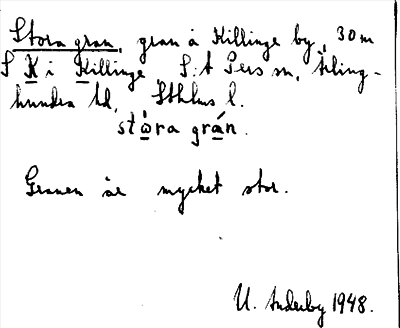 Stora gran, gran å Killinge by, 30 m
S K i Killinge, S:t Pers sn, Ärling-
hundra hd, Sthlms l.
stòra grán.
Granen är mycket stor.
U. Anderby 1948.